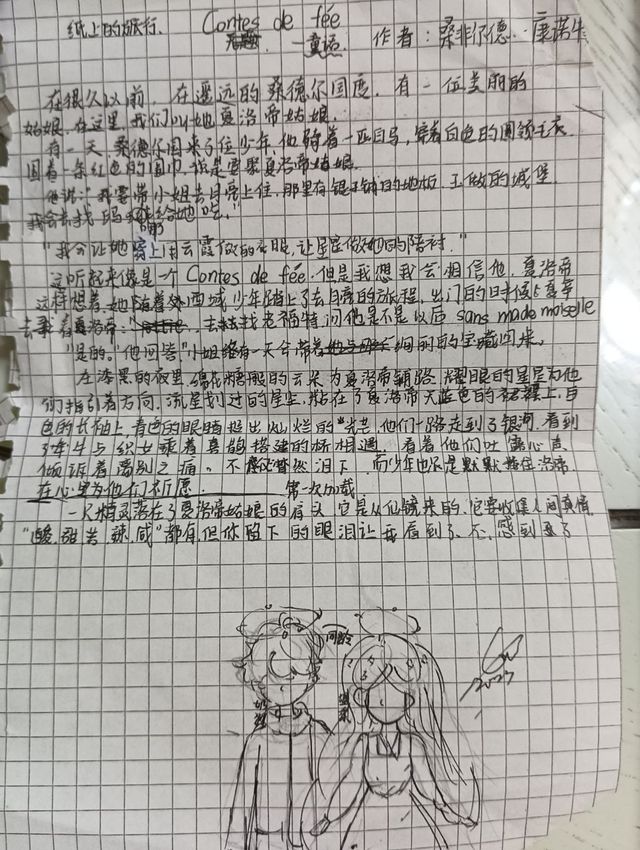 纸上的旅行. Contes de fée
——童话 作者：桑非尔德·康诺牛
在很久以前，在遥远的桑德尔国度，有一位美丽的
姑娘，在这里我们叫她夏洛帝姑娘.
有一天，桑德尔国来了位少年，他骑着一匹白马，穿着白色的圆领
围着一条红色的围巾，说是要娶夏洛帝姑娘
他说："我要带小姐去月亮上住，那里有银子铺的地板，玉做的城堡
我会去找吗哪给她吃."
"我会让她穿上用云霞做的衣服，让星星做她的陪衬."
这听起来像是一个 Contes de fée.但是我想我会相信他，夏洛帝
这样想着，她随着西域少年踏上了去月亮的旅程，出门的时候
去 着夏洛帝：" 去找老福特问他是不是以后 sans mademoiselle
"是的，"他回答"小姐 有一天会带着 的宝藏回来.
在漆黑的夜里，绵花糖般的云朵为夏洛帝铺路，耀眼的星星为他
们指引着方向，流星划过的星尘，粘在了夏洛帝天蓝色的裙摆上，白
色的长袖上，青色的眼睛挺出灿烂的光芒，他们一路走到了银河，看到
了牛牛与织女乘着喜鹊搭建的桥相遇，看着他们吐露心声
倾诉着离别之痛，不 潸然泪下，而少年也只是默默搂住洛帝
在心里为他们祈愿. 第一次加载
一只精灵落在了夏洛帝姑娘的肩头，它是从仙镜来的，它要收集人间真情.
"酸、甜、苦、辣、咸"都有，但你留下的眼泪让我看到了、不、感到
问龄
2027